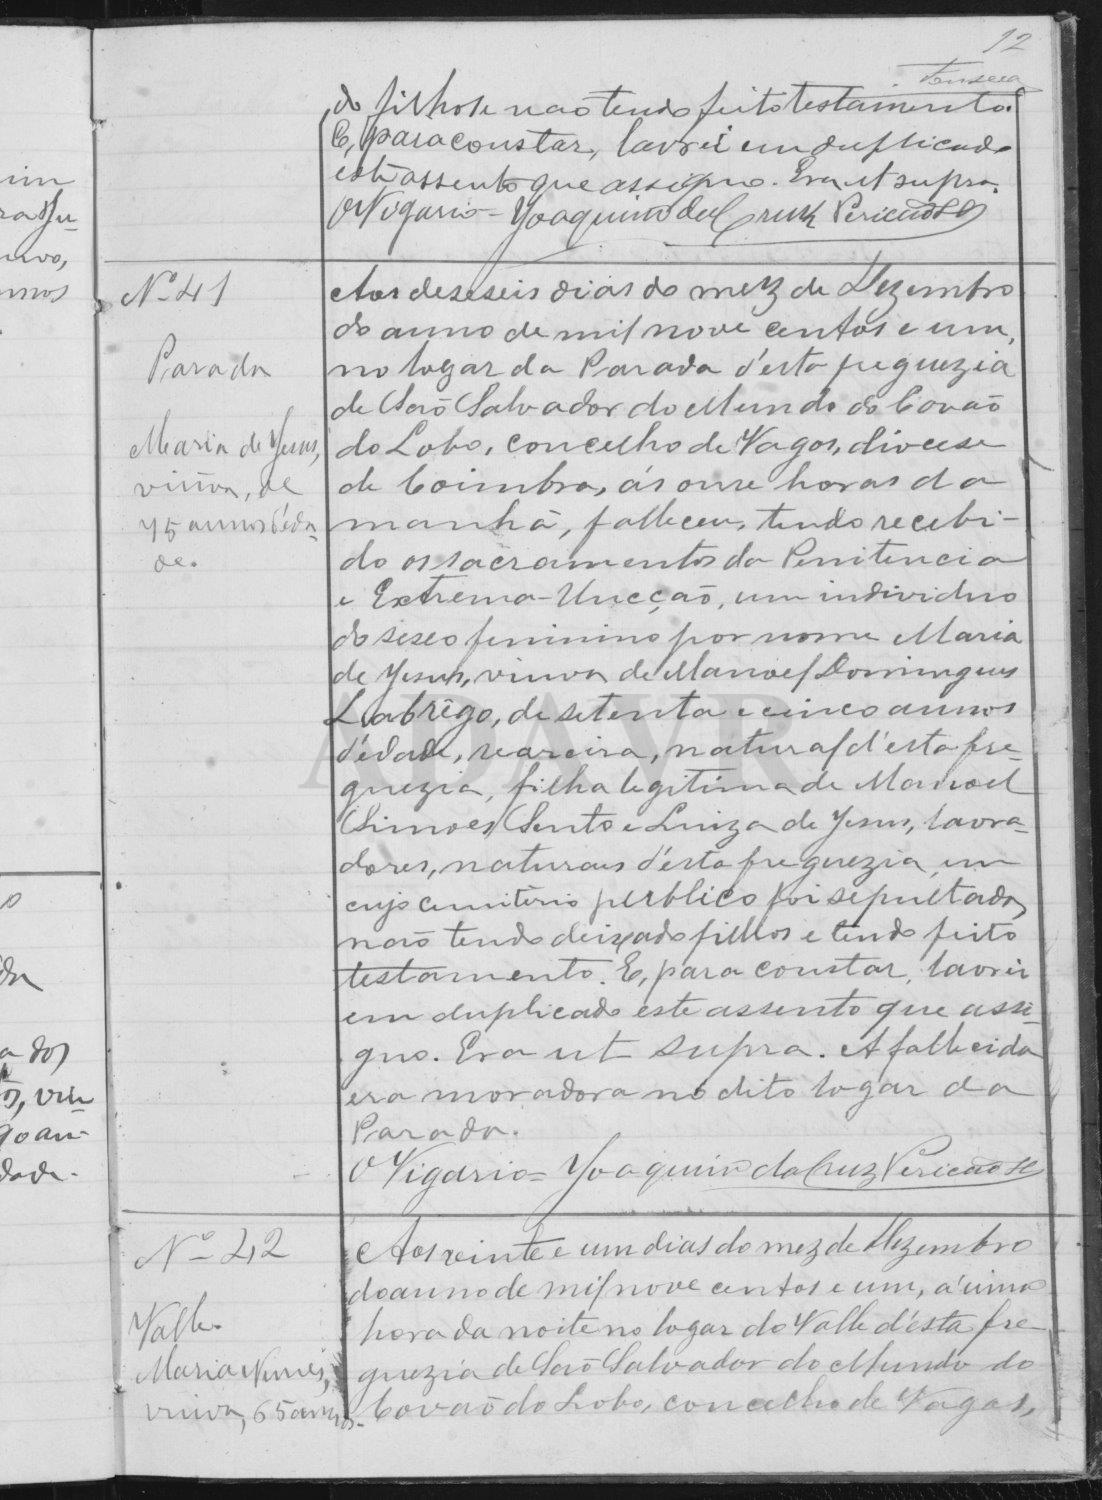 12
Fonseca
do filhos e não tendo feito testamento.
E, para constar, lavrei em duplicado
este assento que assigno. Era ut supra.
O Vigario = Joaquim da Cruz Pericão
Nº 41
Parada
Maria de Jesus,
viuva, de
75 annos d'eda-
de.
Aos deseseis dias do mez de Dezembro
do anno de mil nove centos e um,
no logar da Parada d'esta freguezia
de São Salvador do Mundo do Covão
do Lobo, concelho de Vagos, diocese
de Coimbra, ás onze horas da
manhã, falleceu, tendo recebi-
do os sacramentos da Penitencia
e Extrema-Uncção, um individuo
do sexo feminino por nome Maria
de Jesus, viuva de Manoel Domingues
Labrêgo, de setenta e cinco annos
d'edade, seareira, natural d'esta fre-
guezia, filha legitima de Manoel
Simões Sento e Luiza de Jesus, lavra-
dores, naturaes d'esta freguezia em
cujo cemiterio publico foi sepultada,
não tendo deixado filhos e tendo feito
testamento. E, para constar, lavrei
em duplicado este assento que assi-
gno. Era ut supra. A fallecida
era moradora no dito logar da
Parada.
O Vigario = Joaquim da Cruz Pericão
Nº 42
Valle.
Maria Nunes,
viuva, 65 annos.
Aos vinte e um dias do mez de Dezembro
do anno de mil nove centos e um, á uma
hora da noite no logar do Valle d'esta fre-
guezia de São Salvador do Mundo do
Covão do Lobo, concelho de Vagos,
ADAVR